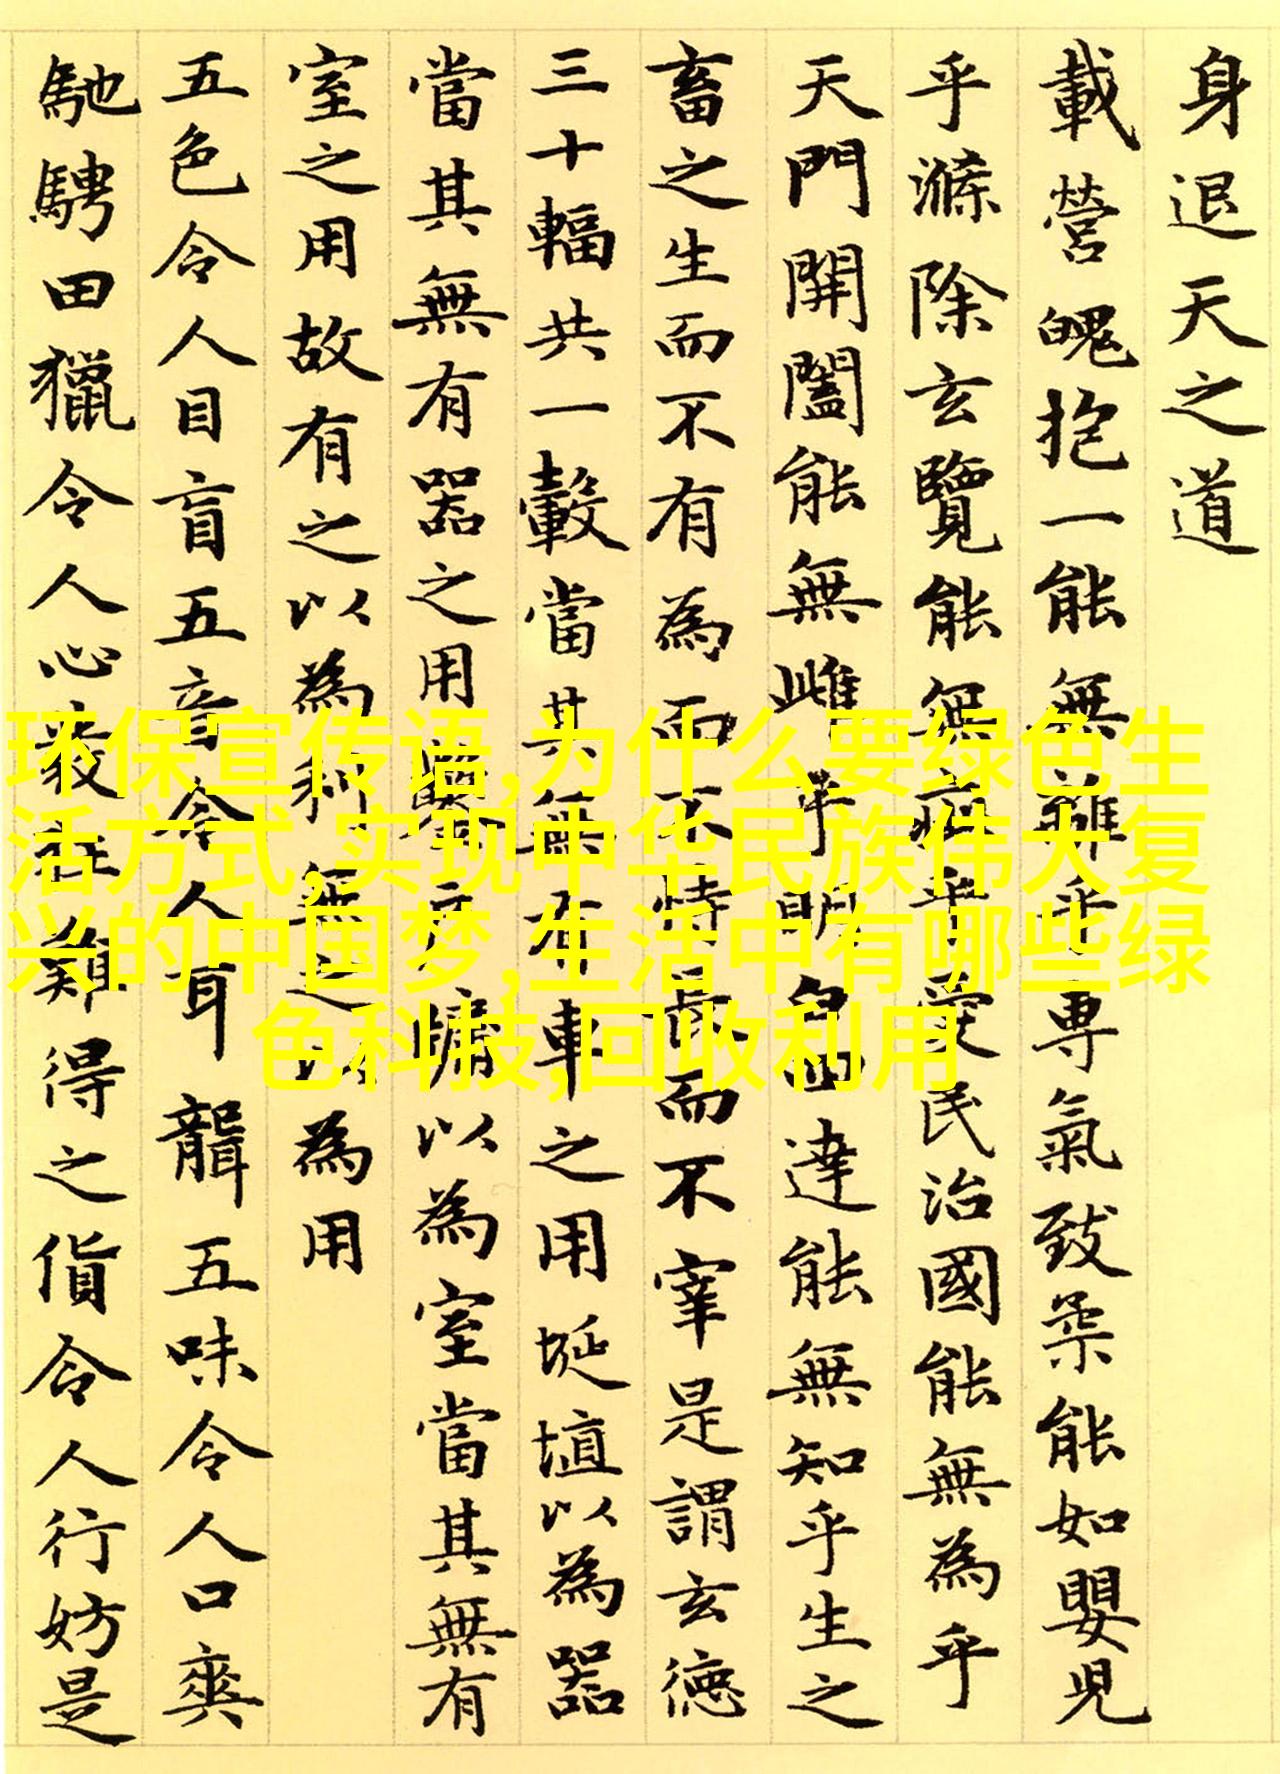 身退天之道
載營魄抱一能無離乎專氣致柔能如嬰兒
乎滌除玄覽能無疵乎愛民治國能無為乎
天門開闔能無雌乎明白四達能無知乎生之
畜之生而不有為而不恃長而不宰是謂玄德
三十輻共一轂當其無有車之用埏埴以為器
當其無有器之用鑿戶牖以為室當其無有
室之用故有之以為利無之以為用
五色令人目盲五音令人耳聾五味令人口爽
馳騁田獵令人心發狂難得之貨令人行妨是
环保宣传语,为什么要绿色生
活方式,实现中华民族伟大复
兴的中国梦,生活中有哪些绿
色科技,回收利用